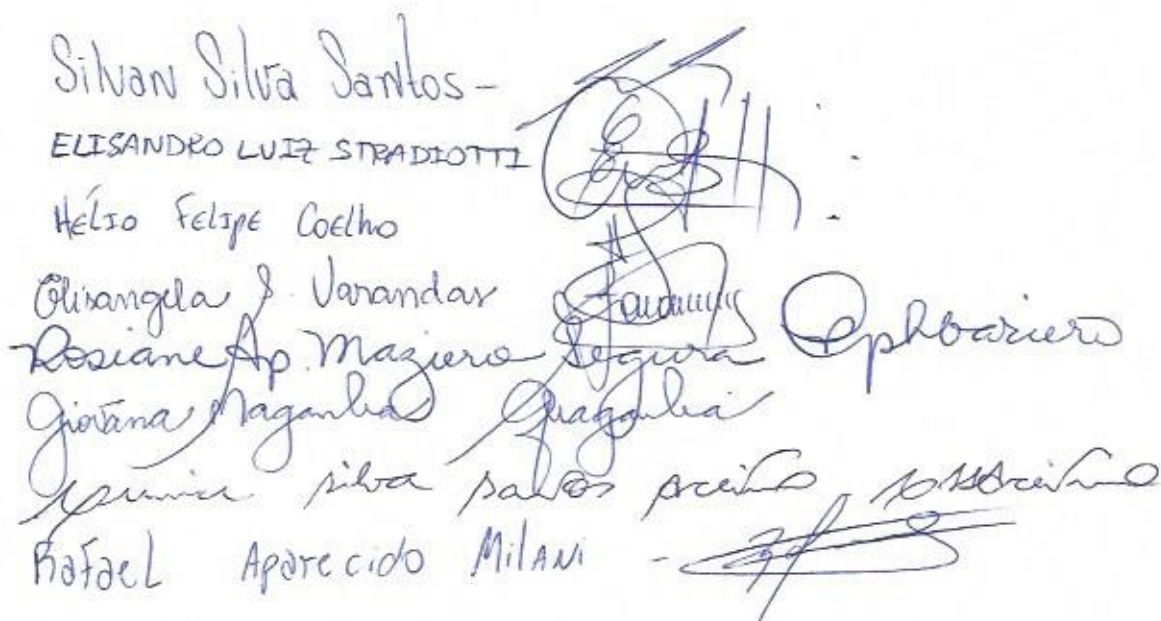 Silvan Silva Santos -
ELISANDRO LUIZ STRADIOTTI
HÉLIO FELIPE COELHO
Elisangela S. Varandas
Rosiane Ap. Maziero Segura
Giovana Maganha
silva santos
Rafael Aparecido Milani -